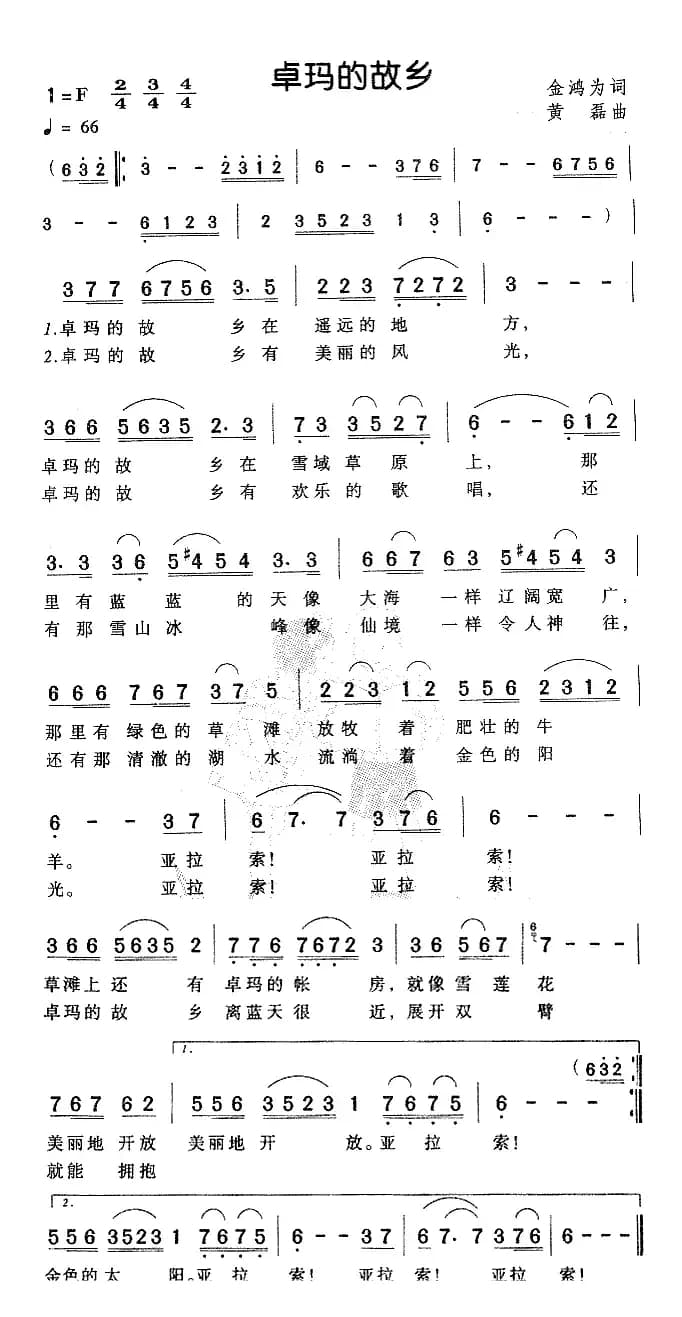 卓玛的故乡
1=F 2/4 3/4 4/4
金鸿为词
♩= 66
黄 磊曲
(6 3 2 ‖: 3 - - 2 3 1 2 | 6 - - 3 7 6 | 7 - - 6 7 5 6 |
3 - - 6 1 2 3 | 2 3 5 2 3 1 3 | 6 - - - )
3 7 7 6 7 5 6 3. 5 | 2 2 3 7 2 7 2 | 3 - - - |
1.卓玛的故 乡在 遥远的地 方,
2.卓玛的故 乡有 美丽的风 光,
3 6 6 5 6 3 5 2. 3 | 7 3 3 5 2 7 | 6 - - 6 1 2 |
卓玛的故 乡在 雪域草原 上, 那
卓玛的故 乡有 欢乐的歌 唱, 还
3. 3 3 6 5 #4 5 4 3. 3 | 6 6 7 6 3 5 #4 5 4 3 |
里有蓝 蓝 的天像 大海 一样辽阔宽 广,
有那雪山冰 峰像 仙境 一样令人神 往,
6 6 6 7 6 7 3 7 5 | 2 2 3 1 2 5 5 6 2 3 1 2 |
那里有绿色的草 滩 放牧 着 肥壮的牛
还有那清澈的湖 水 流淌 着 金色的阳
6 - - 3 7 | 6 7. 7 3 7 6 | 6 - - - |
羊。 亚拉 索! 亚拉 索!
光。 亚拉 索! 亚拉 索!
3 6 6 5 6 3 5 2 | 7 7 6 7 6 7 2 3 | 3 6 5 6 7 | 6 7 - - - |
草滩上还 有 卓玛的帐 房,就像雪 莲 花
卓玛的故 乡 离蓝天很 近,展开双 臂
1.
(6 3 2
7 6 7 6 2 | 5 5 6 3 5 2 3 1 7 6 7 5 | 6 - :‖
美丽地 开放 美丽地 开 放。亚 拉 索!
就能 拥抱
2.
5 5 6 3 5 2 3 1 7 6 7 5 | 6 - - 3 7 | 6 7. 7 3 7 6 | 6 - - - ‖
金色的太 阳。亚 拉 索! 亚拉 索! 亚拉 索!